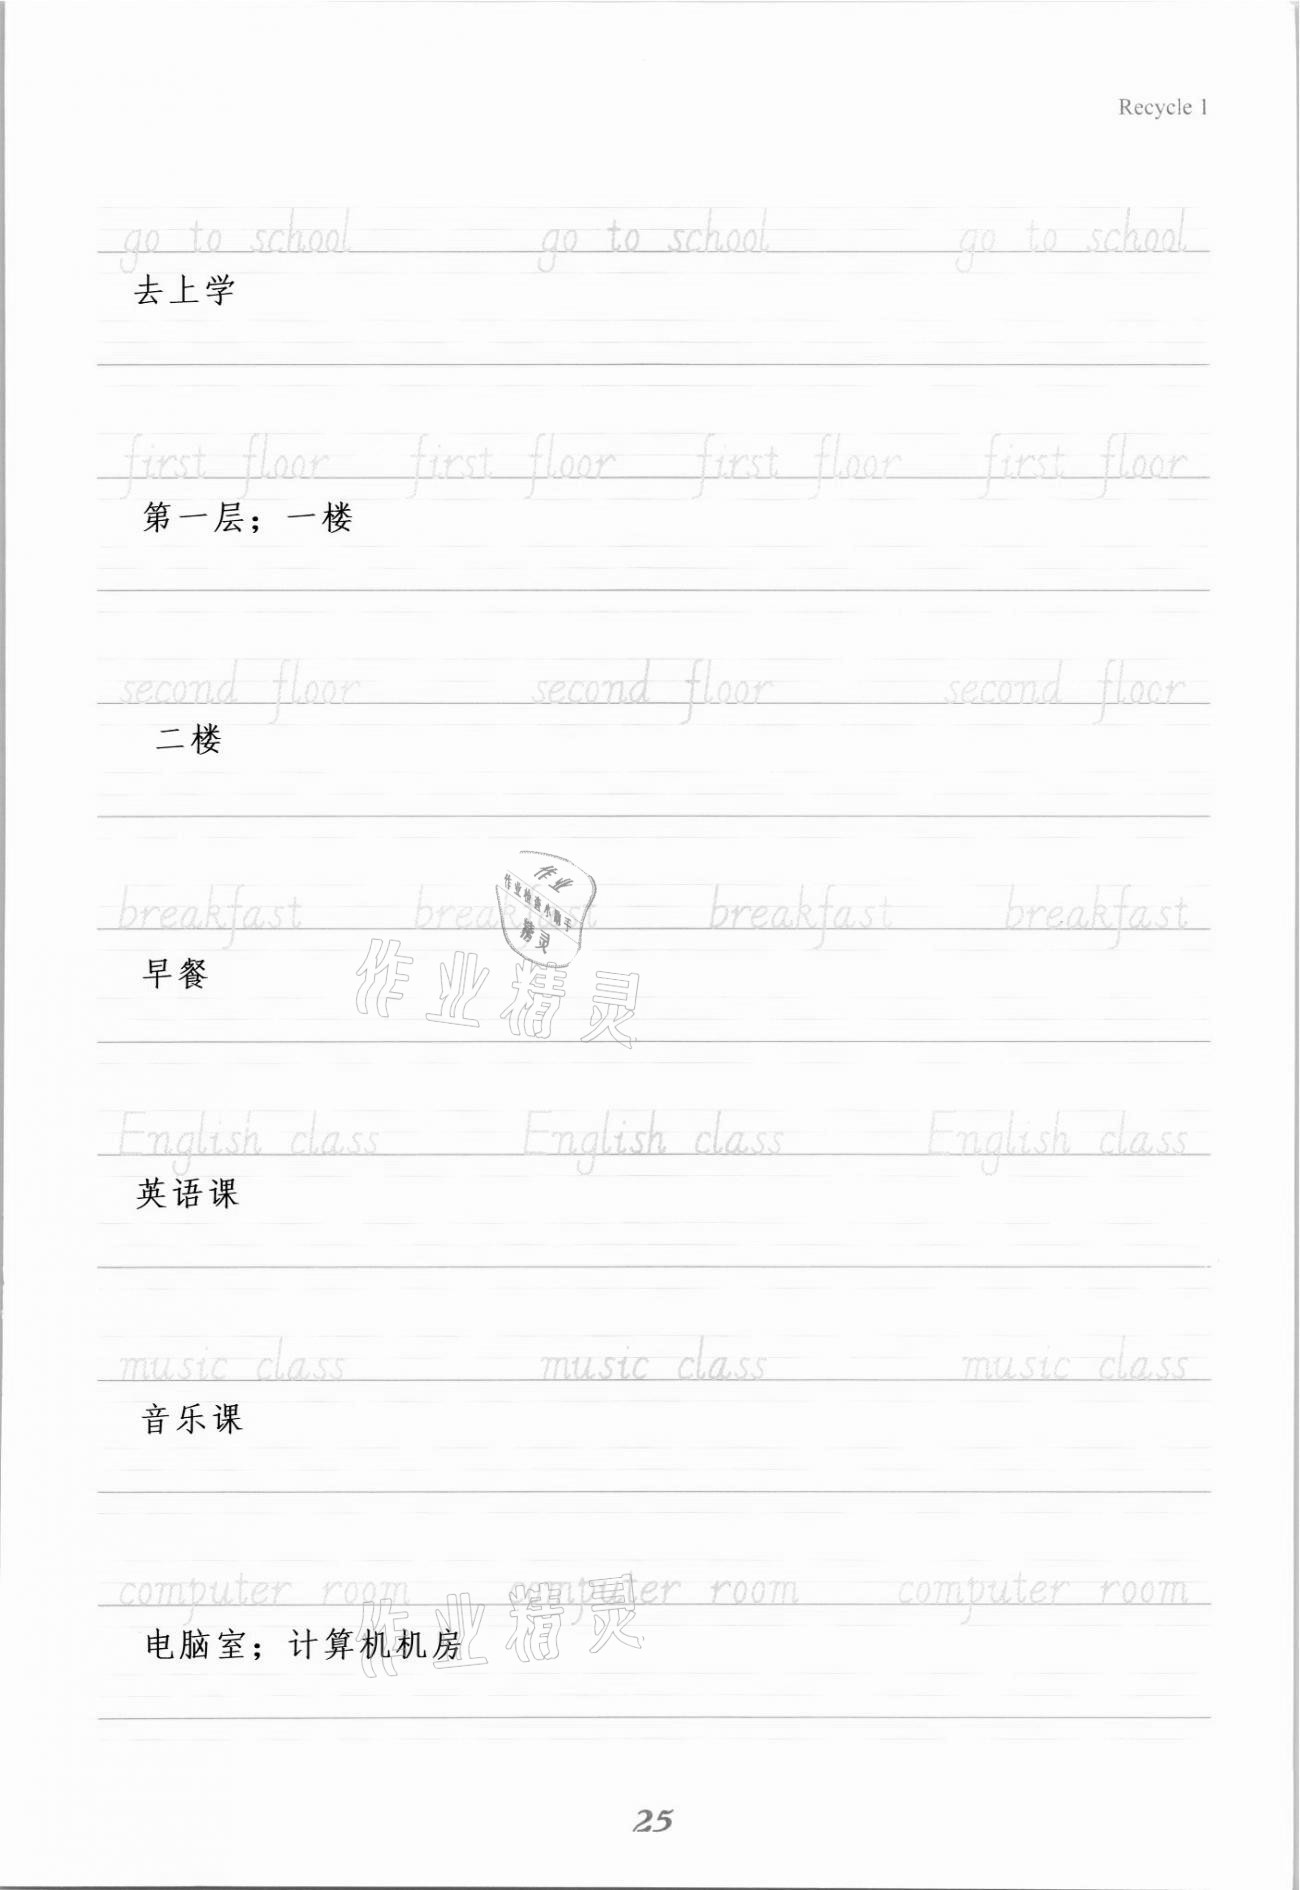 Recycle 1
go to school go to school go to school
去上学
first floor first floor first floor first floor
第一层；一楼
second floor second floor second floor
二楼
breakfast breakfast breakfast breakfast
作业
作业检查小助手
精灵
早餐
作业精灵
English class English class English class
英语课
music class music class music class
音乐课
computer room computer room computer room
作业精灵
电脑室；计算机机房
25